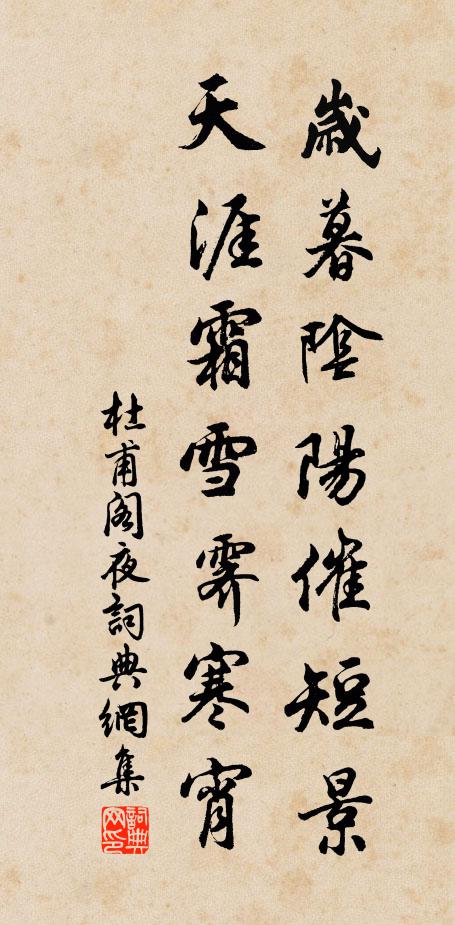 歲暮陰陽催短景
天涯霜雪霽寒宵
杜甫閣夜詞典網集
詞典網印